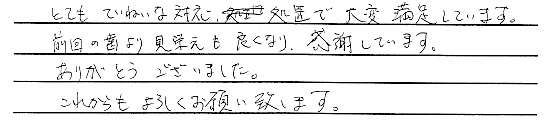 とても ていねいな 対応、処置で 大変 満足しています。
前回の歯より 見栄えも 良くなり、感謝しています。
ありがとう ございました。
これからも よろしくお願い致します。